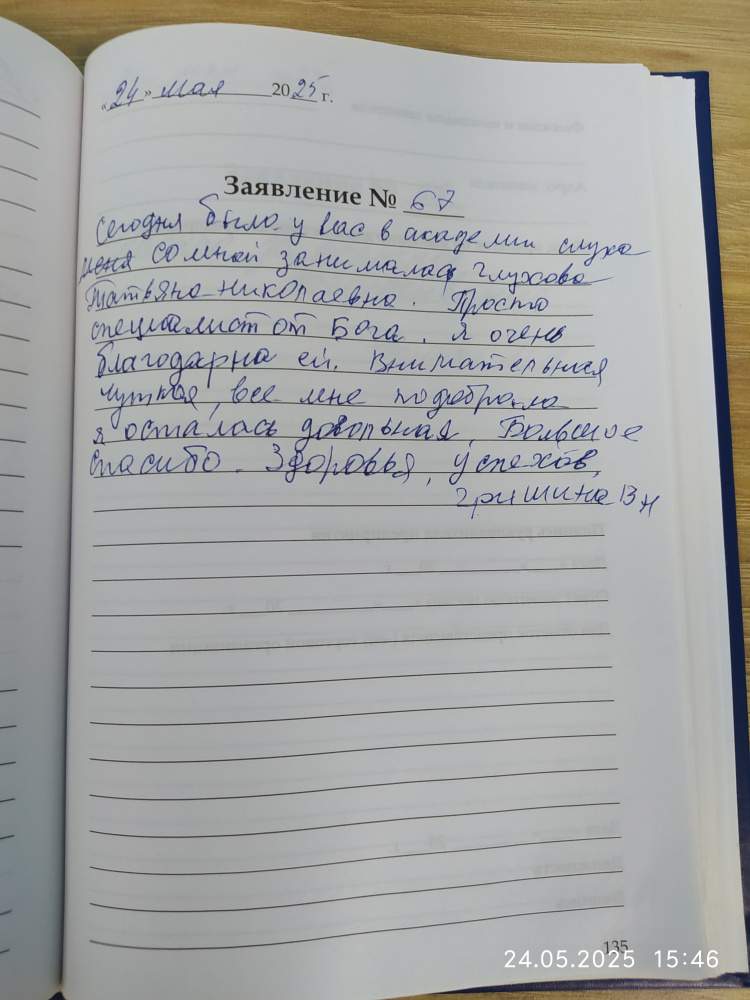 «24» мая 2025 г.
Заявление № 67
Сегодня было у вас в академии слуха
меня со мной занималась Глухова
Татьяна Николаевна. Просто
специалист от Бога. Я очень
благодарна ей. Внимательная
чуткая, все мне подобрала
я осталась довольная. Большое
спасибо. Здоровья, успехов,
Гришина В Н
135
24.05.2025 15:46